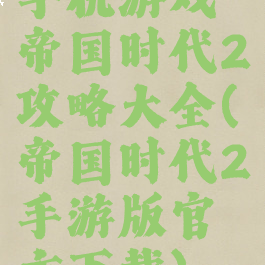 手机游戏
帝国时代2
攻略大全(
帝国时代2
手游版官
方下载)